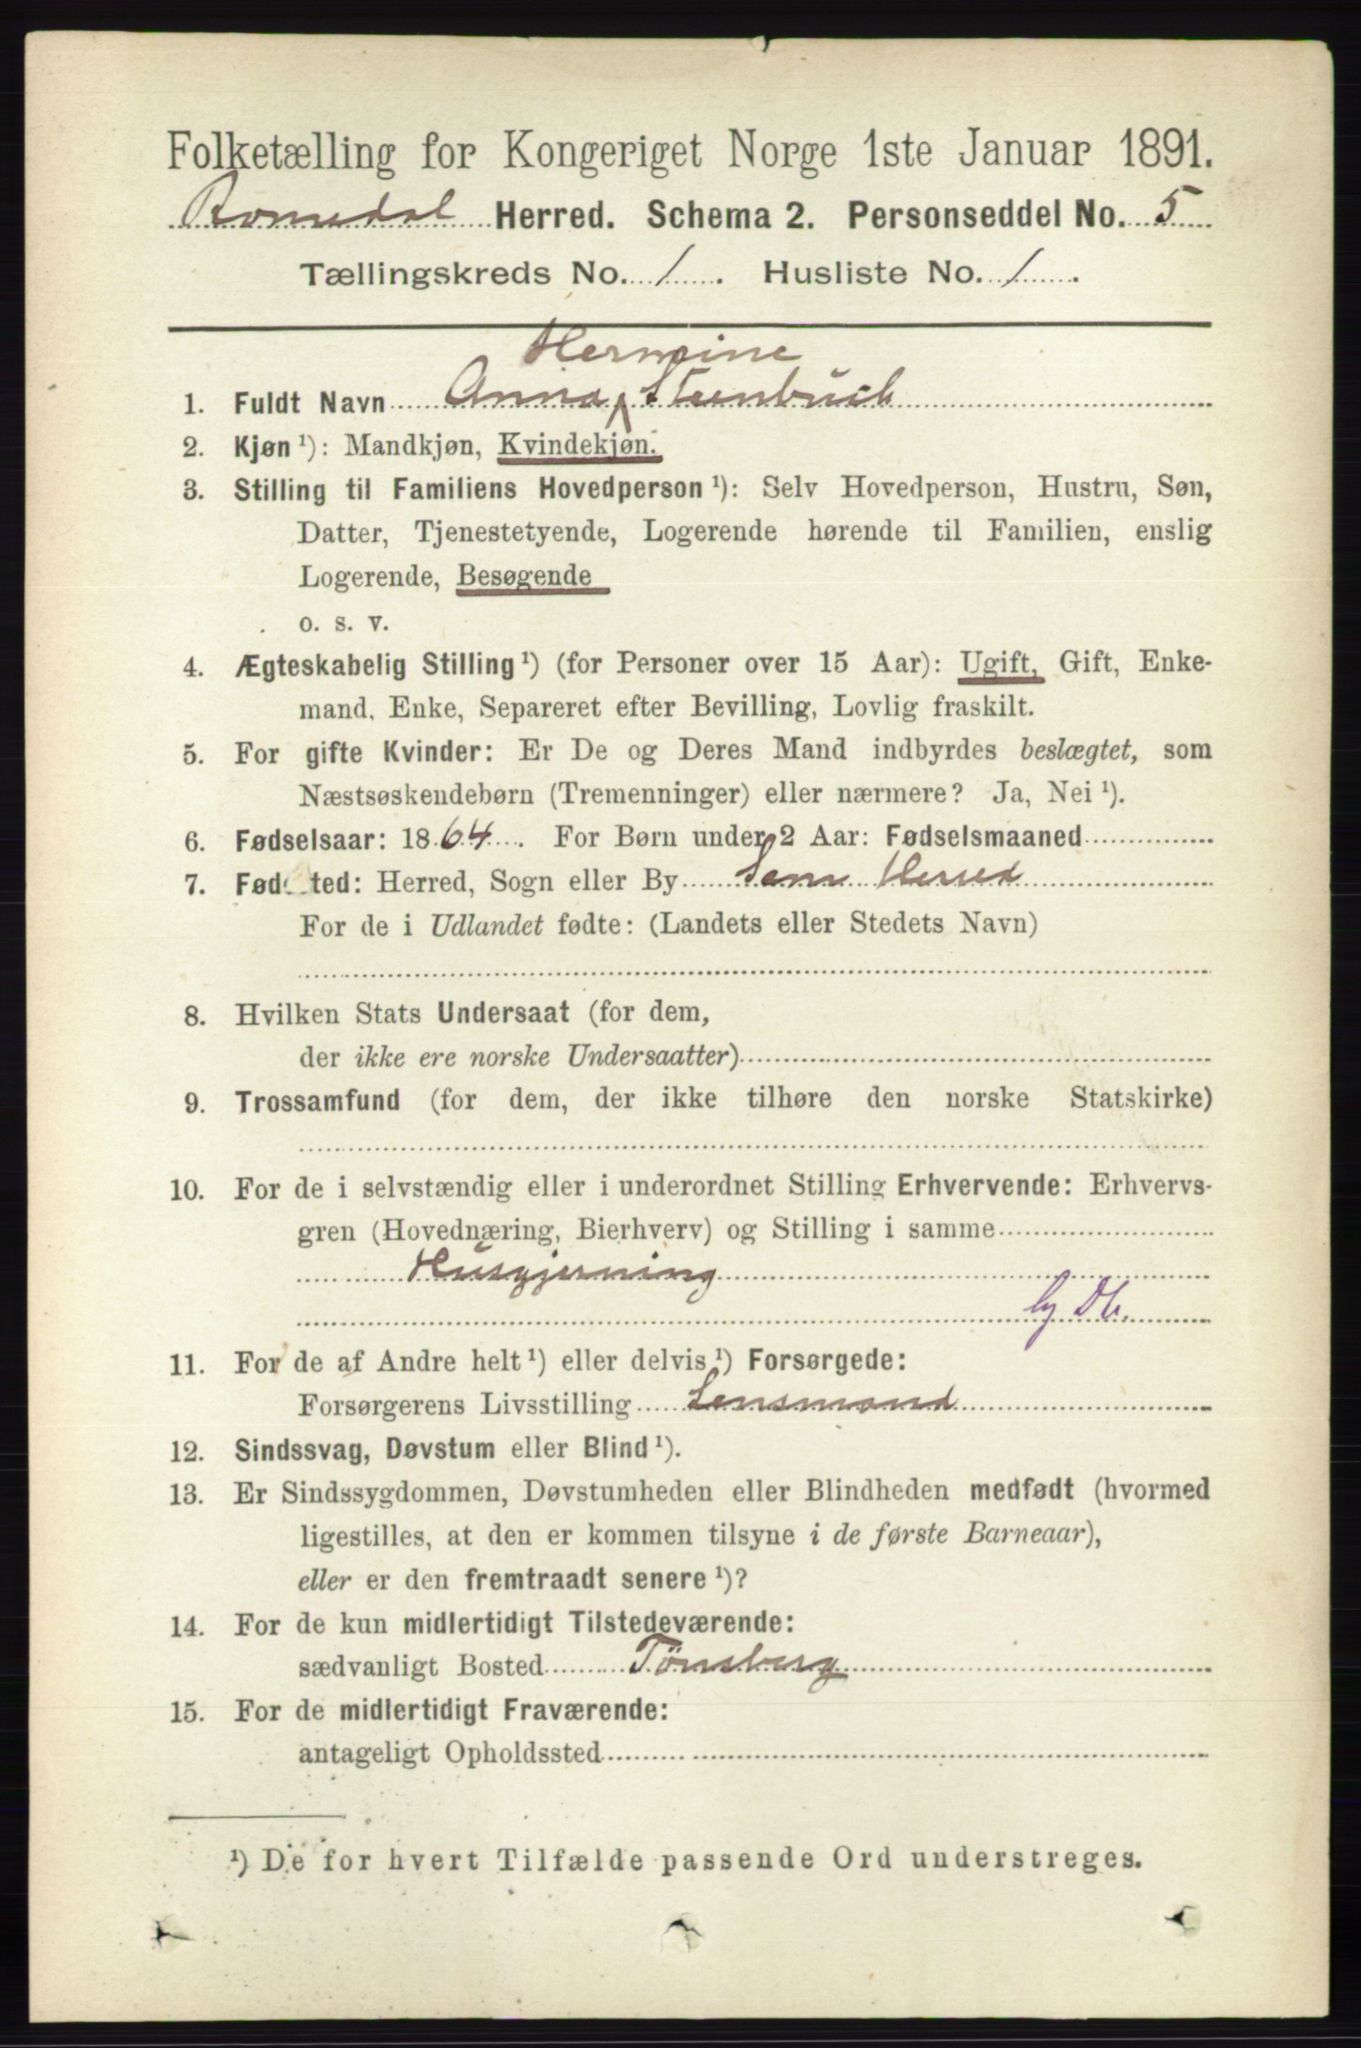 Folketælling for Kongeriget Norge 1ste Januar 1891.
Romedal Herred. Schema 2. Personseddel No. 5
Tællingskreds No. 1. Husliste No. 1.
Hermine
1. Fuldt Navn Anna Steenbuch
2. Kjøn ¹): Mandkjøn, Kvindekjøn.
3. Stilling til Familiens Hovedperson ¹): Selv Hovedperson, Hustru, Søn,
Datter, Tjenestetyende, Logerende hørende til Familien, enslig
Logerende, Besøgende
o. s. v.
4. Ægteskabelig Stilling ¹) (for Personer over 15 Aar): Ugift, Gift, Enke-
mand, Enke, Separeret efter Bevilling, Lovlig fraskilt.
5. For gifte Kvinder: Er De og Deres Mand indbyrdes beslægtet, som
Næstsøskendebørn (Tremenninger) eller nærmere? Ja, Nei ¹).
6. Fødselsaar: 1864. For Børn under 2 Aar: Fødselsmaaned
7. Fød ted: Herred, Sogn eller By Sem Herred
For de i Udlandet fødte: (Landets eller Stedets Navn)
8. Hvilken Stats Undersaat (for dem,
der ikke ere norske Undersaatter)
9. Trossamfund (for dem, der ikke tilhøre den norske Statskirke)
10. For de i selvstændig eller i underordnet Stilling Erhvervende: Erhvervs-
gren (Hovednæring, Bierhverv) og Stilling i samme
Husgjerning
11. For de af Andre helt ¹) eller delvis ¹) Forsørgede:
Forsørgerens Livsstilling Lensmand
12. Sindssvag, Døvstum eller Blind ¹).
13. Er Sindssygdommen, Døvstumheden eller Blindheden medfødt (hvormed
ligestilles, at den er kommen tilsyne i de første Barneaar),
eller er den fremtraadt senere ¹)?
14. For de kun midlertidigt Tilstedeværende:
sædvanligt Bosted Tönsberg
15. For de midlertidigt Fraværende:
antageligt Opholdssted
¹) De for hvert Tilfælde passende Ord understreges.